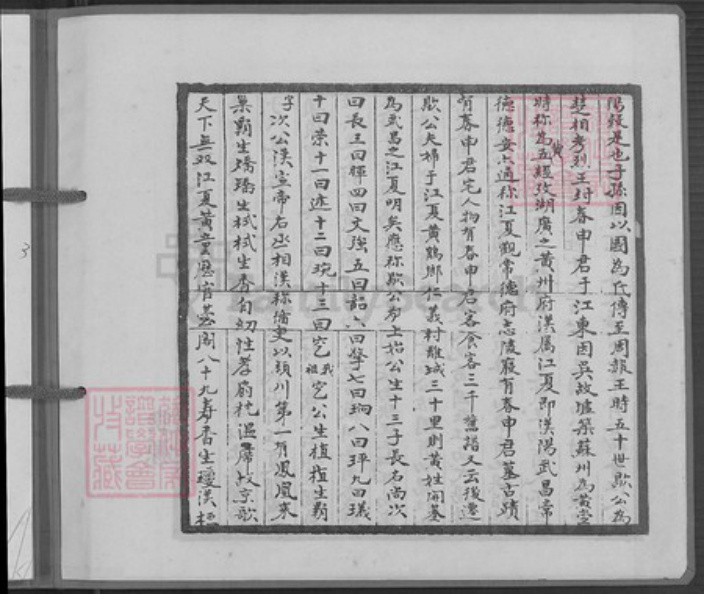 陽縣是也子孫因以國為氏傳至周赧王時五十世歇公為
楚相考烈王封春申君于江東因吳故墟築蘇州為黃堂
時称為五經攷湖廣之黃州府漢屬江夏即漢陽武昌常
德德安六通称江夏觀常德府志陵嚴有春申君墓古蹟
有春申君宅人物有春申君客食客三千舊譜又云後遷
歇公夫婦于江夏黃鶴鄉仁義村離城三十里則黃姓開基
為武昌之江夏明矣應称歇公為上始公生十三子長名尚次
曰長三曰輝四曰文強五曰韶六曰擎七曰珣八曰玶九曰璣
十曰榮十一曰述十二曰琬十三曰究我祖究公生植植生霸
字次公漢宣帝右丞相漢称循吏以頴川第一有鳳凰來
巢霸生璚璚生栻栻生香自幼性孝扇枕溫席故京歌
天下無双江夏黃童歷官臺閣八十九寿香生瓊漢極
FamilySearch
3